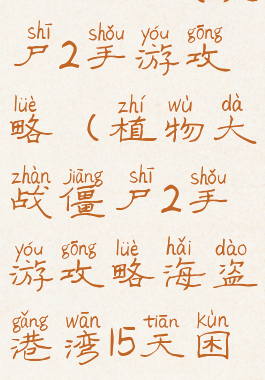 shī shǒu yóu gōng
尸2手游攻
lüè zhí wù dà
略（植物大
zhàn jiāng shī shǒu
战僵尸2手
yóu gōng lüè hǎi dào
游攻略海盗
gǎng wān tiān kùn
港湾15天困